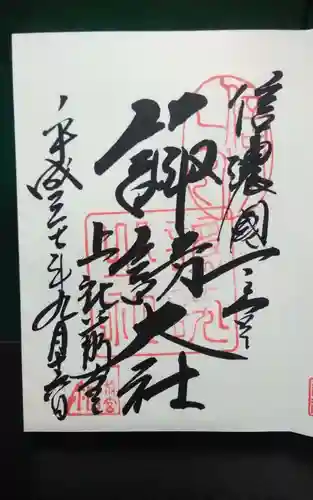 信濃國一之宮
諏訪大社
上社前宮
平成三十年九月十六日